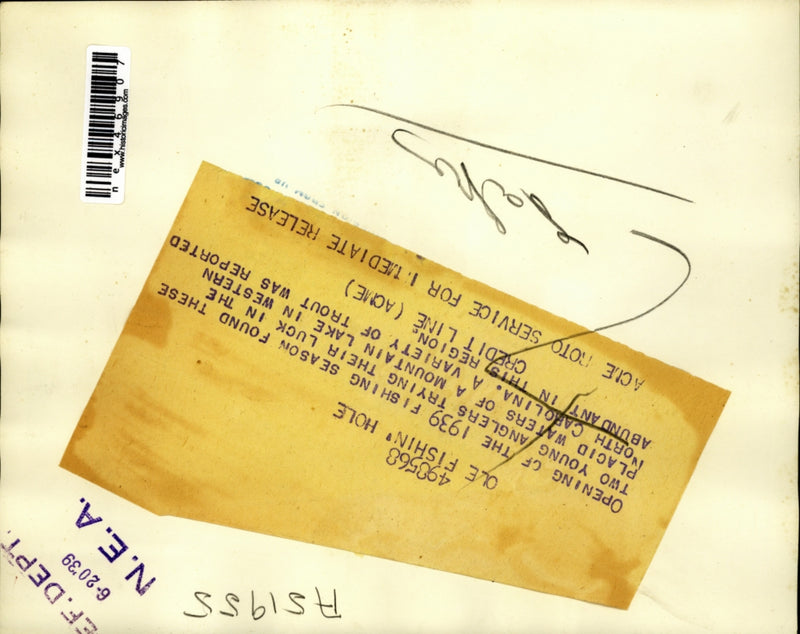 498568
OLE FISHIN' HOLE
OPENING OF THE 1939 FISHING SEASON FOUND THESE
TWO YOUNG ANGLERS TRYING THEIR LUCK IN THE
PLACID WATERS OF A MOUNTAIN LAKE IN WESTERN
NORTH CAROLINA. A VARIETY OF TROUT WAS REPORTED
ABUNDANT IN THIS REGION.
CREDIT LINE (ACME)
ACME ROTO SERVICE FOR IMMEDIATE RELEASE
nex46907
www.historicimages.com
EF. DEPT.
6-20'39
N.E.A.
AS1955